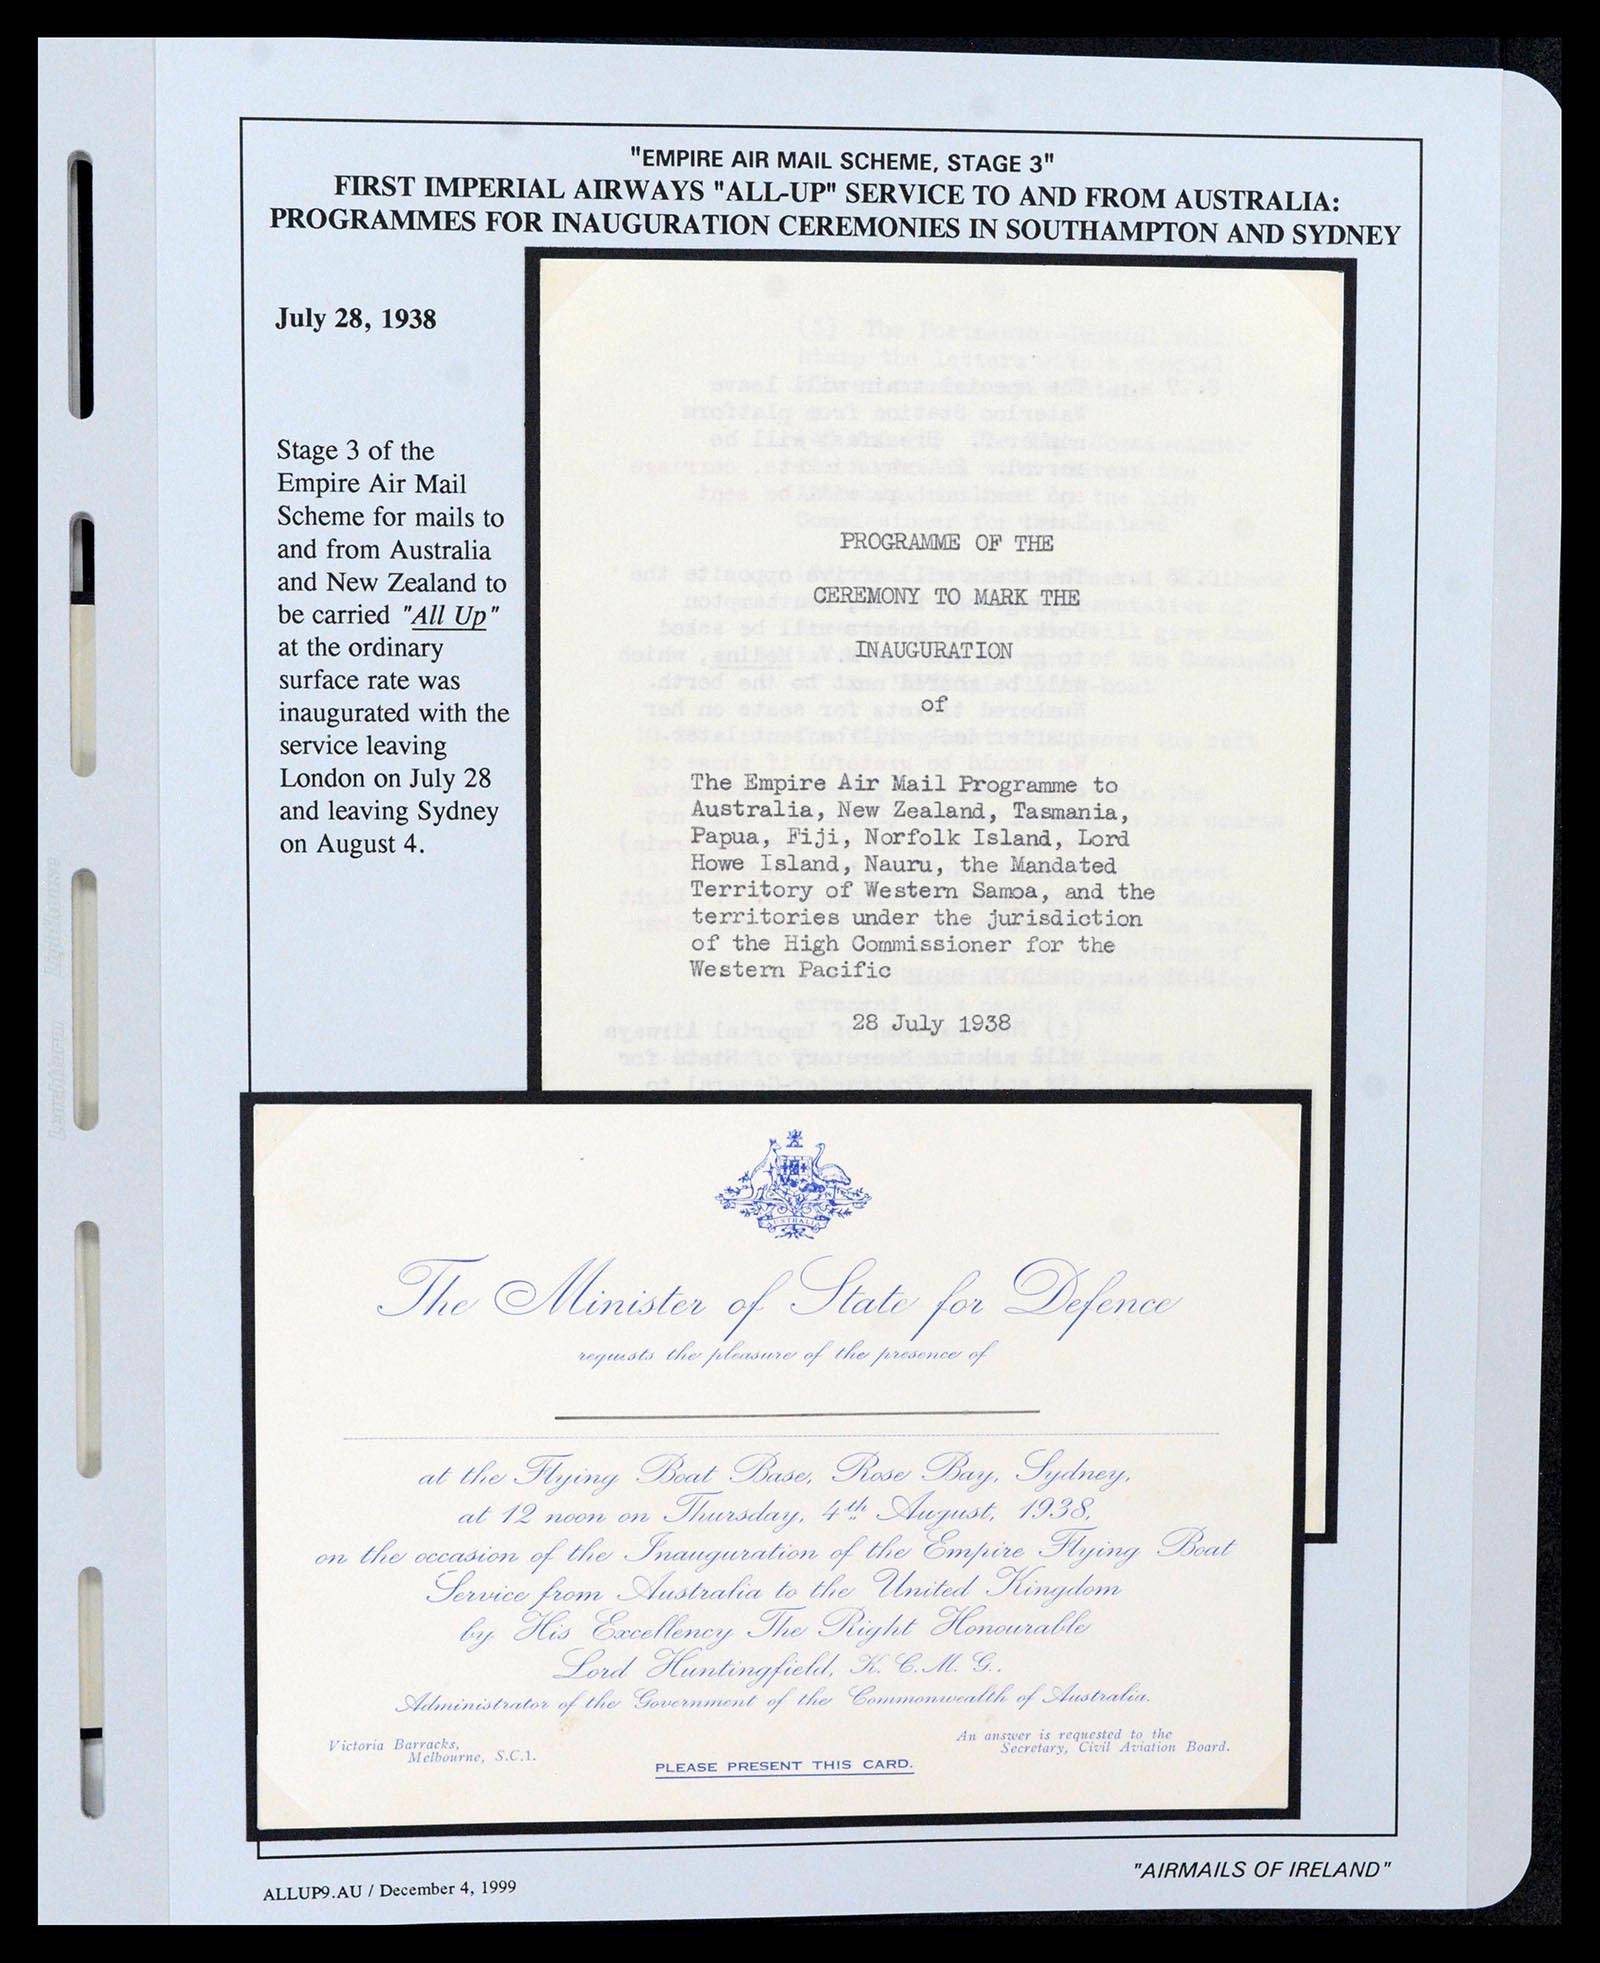 "EMPIRE AIR MAIL SCHEME, STAGE 3"
FIRST IMPERIAL AIRWAYS "ALL-UP" SERVICE TO AND FROM AUSTRALIA:
PROGRAMMES FOR INAUGURATION CEREMONIES IN SOUTHAMPTON AND SYDNEY
July 28, 1938
Stage 3 of the
Empire Air Mail
Scheme for mails to
and from Australia
and New Zealand to
be carried "All Up"
at the ordinary
surface rate was
inaugurated with the
service leaving
London on July 28
and leaving Sydney
on August 4.
PROGRAMME OF THE
CEREMONY TO MARK THE
INAUGURATION
of
The Empire Air Mail Programme to
Australia, New Zealand, Tasmania,
Papua, Fiji, Norfolk Island, Lord
Howe Island, Nauru, the Mandated
Territory of Western Samoa, and the
territories under the jurisdiction
of the High Commissioner for the
Western Pacific
28 July 1938
AUSTRALIA
The Minister of State for Defence
requests the pleasure of the presence of
at the Flying Boat Base, Rose Bay, Sydney,
at 12 noon on Thursday, 4th August, 1938,
on the occasion of the Inauguration of the Empire Flying Boat
Service from Australia to the United Kingdom
by His Excellency The Right Honourable
Lord Huntingfield, K.C.M.G.,
Administrator of the Government of the Commonwealth of Australia.
Victoria Barracks,
Melbourne, S.C.1.
An answer is requested to the
Secretary, Civil Aviation Board.
PLEASE PRESENT THIS CARD.
ALLUP9.AU / December 4, 1999
"AIRMAILS OF IRELAND"